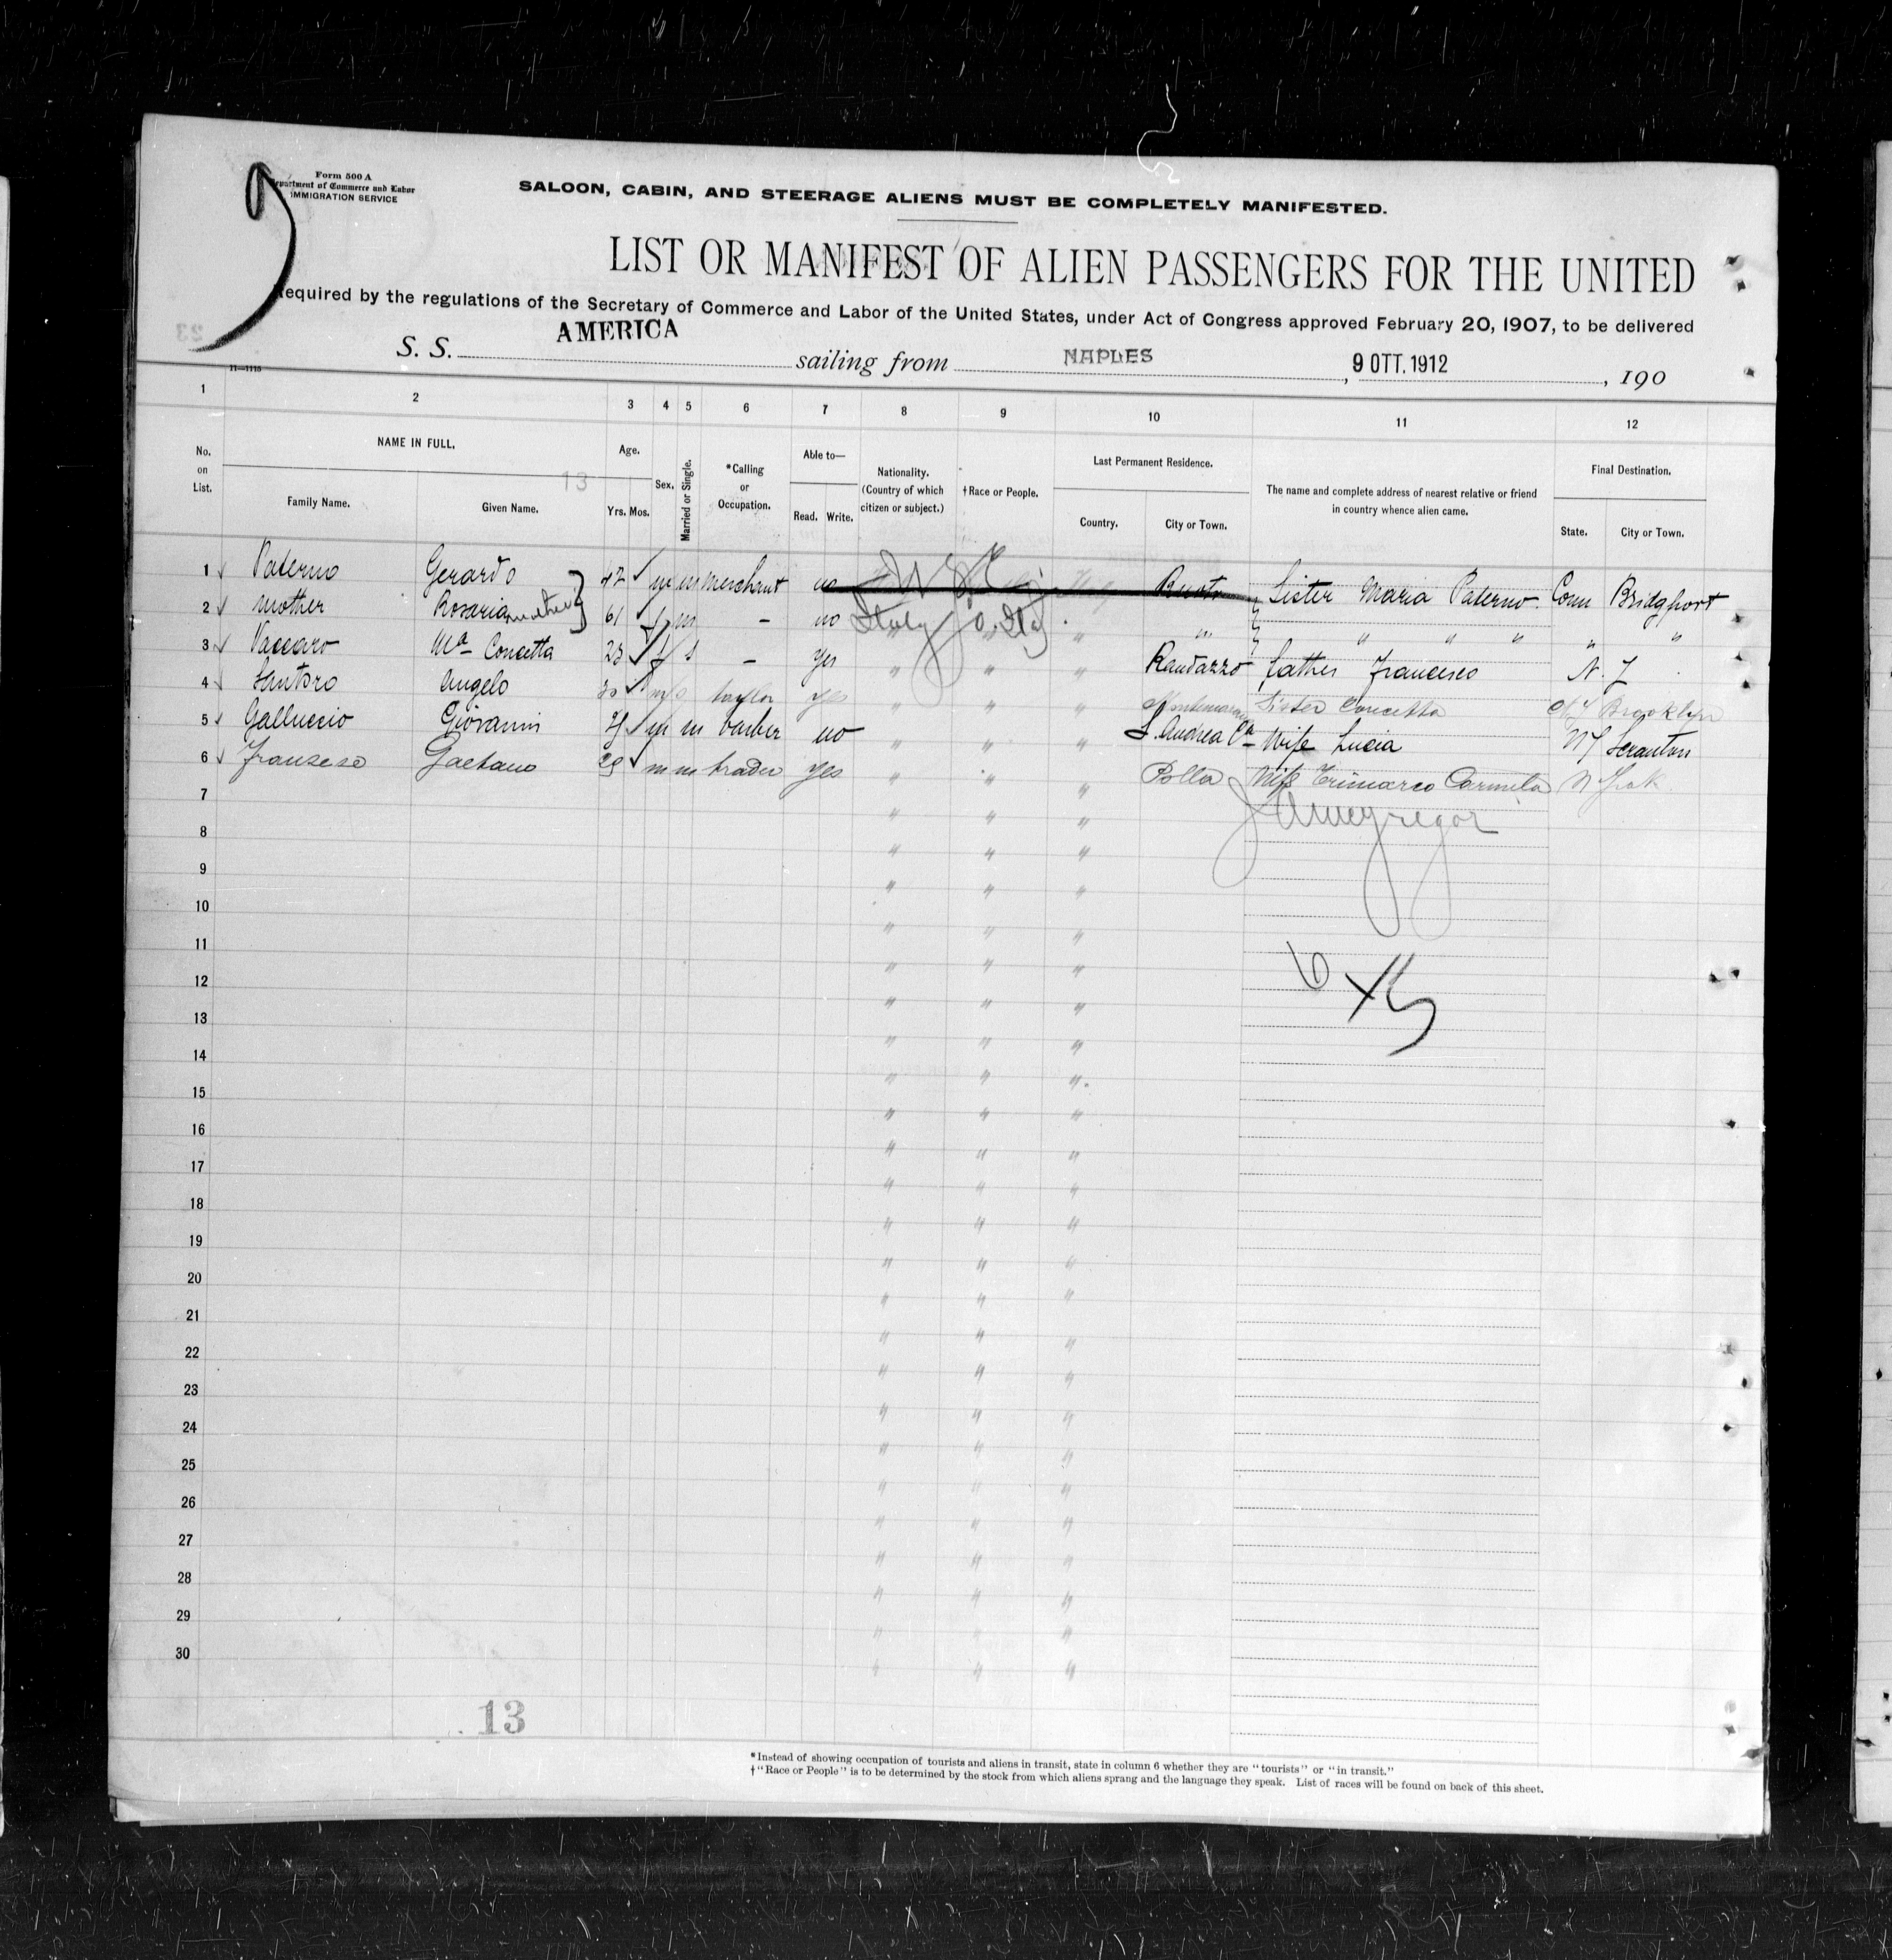 Form 500 A
Department of Commerce and Labor
IMMIGRATION SERVICE
SALOON, CABIN, AND STEERAGE ALIENS MUST BE COMPLETELY MANIFESTED.
LIST OR MANIFEST OF ALIEN PASSENGERS FOR THE UNITED
Required by the regulations of the Secretary of Commerce and Labor of the United States, under Act of Congress approved February 20, 1907, to be delivered
S. S. AMERICA sailing from NAPLES, 9 OTT. 1912, 190
11—1115
1 2 3 4 5 6 7 8 9 10 11 12
No. on List. NAME IN FULL. Age. Sex. Married or Single. *Calling or Occupation. Able to— Nationality. (Country of which citizen or subject.) †Race or People. Last Permanent Residence. The name and complete address of nearest relative or friend in country whence alien came. Final Destination.
13
Family Name. Given Name. Yrs. Mos. Read. Write. Country. City or Town. State. City or Town.
1 Paterno Gerardo 42 m m merchant no Sister Maria Paterno Conn Bridgport
2 mother Rosaria mother 61 f m - no Italy " " " " " " " "
3 Vaccaro Ma Concetta 23 f s - yes " " " Randazzo father Francesco N. J
4 Santoro Angelo 30 m s taylor yes " " " Sister Concetta NY Brooklyn
5 Galluccio Giovanni m m barber no " " " S. Andrea Ca Wife Lucia Scranton
6 Franzese Gaetano 29 m m trader yes " " " Polla Wife Trimarco Carmela N York
7 " " "
8 " " "
9 " " "
10 " " "
11 " " "
12 " " "
13 " " "
14 " " "
15 " " "
16 " " "
17 " " "
18 " " "
19 " " "
20 " " "
21 " " "
22 " " "
23 " " "
24 " " "
25 " " "
26 " " "
27 " " "
28 " " "
29 " " "
30 " " "
13
*Instead of showing occupation of tourists and aliens in transit, state in column 6 whether they are "tourists" or "in transit."
†"Race or People" is to be determined by the stock from which aliens sprang and the language they speak. List of races will be found on back of this sheet.